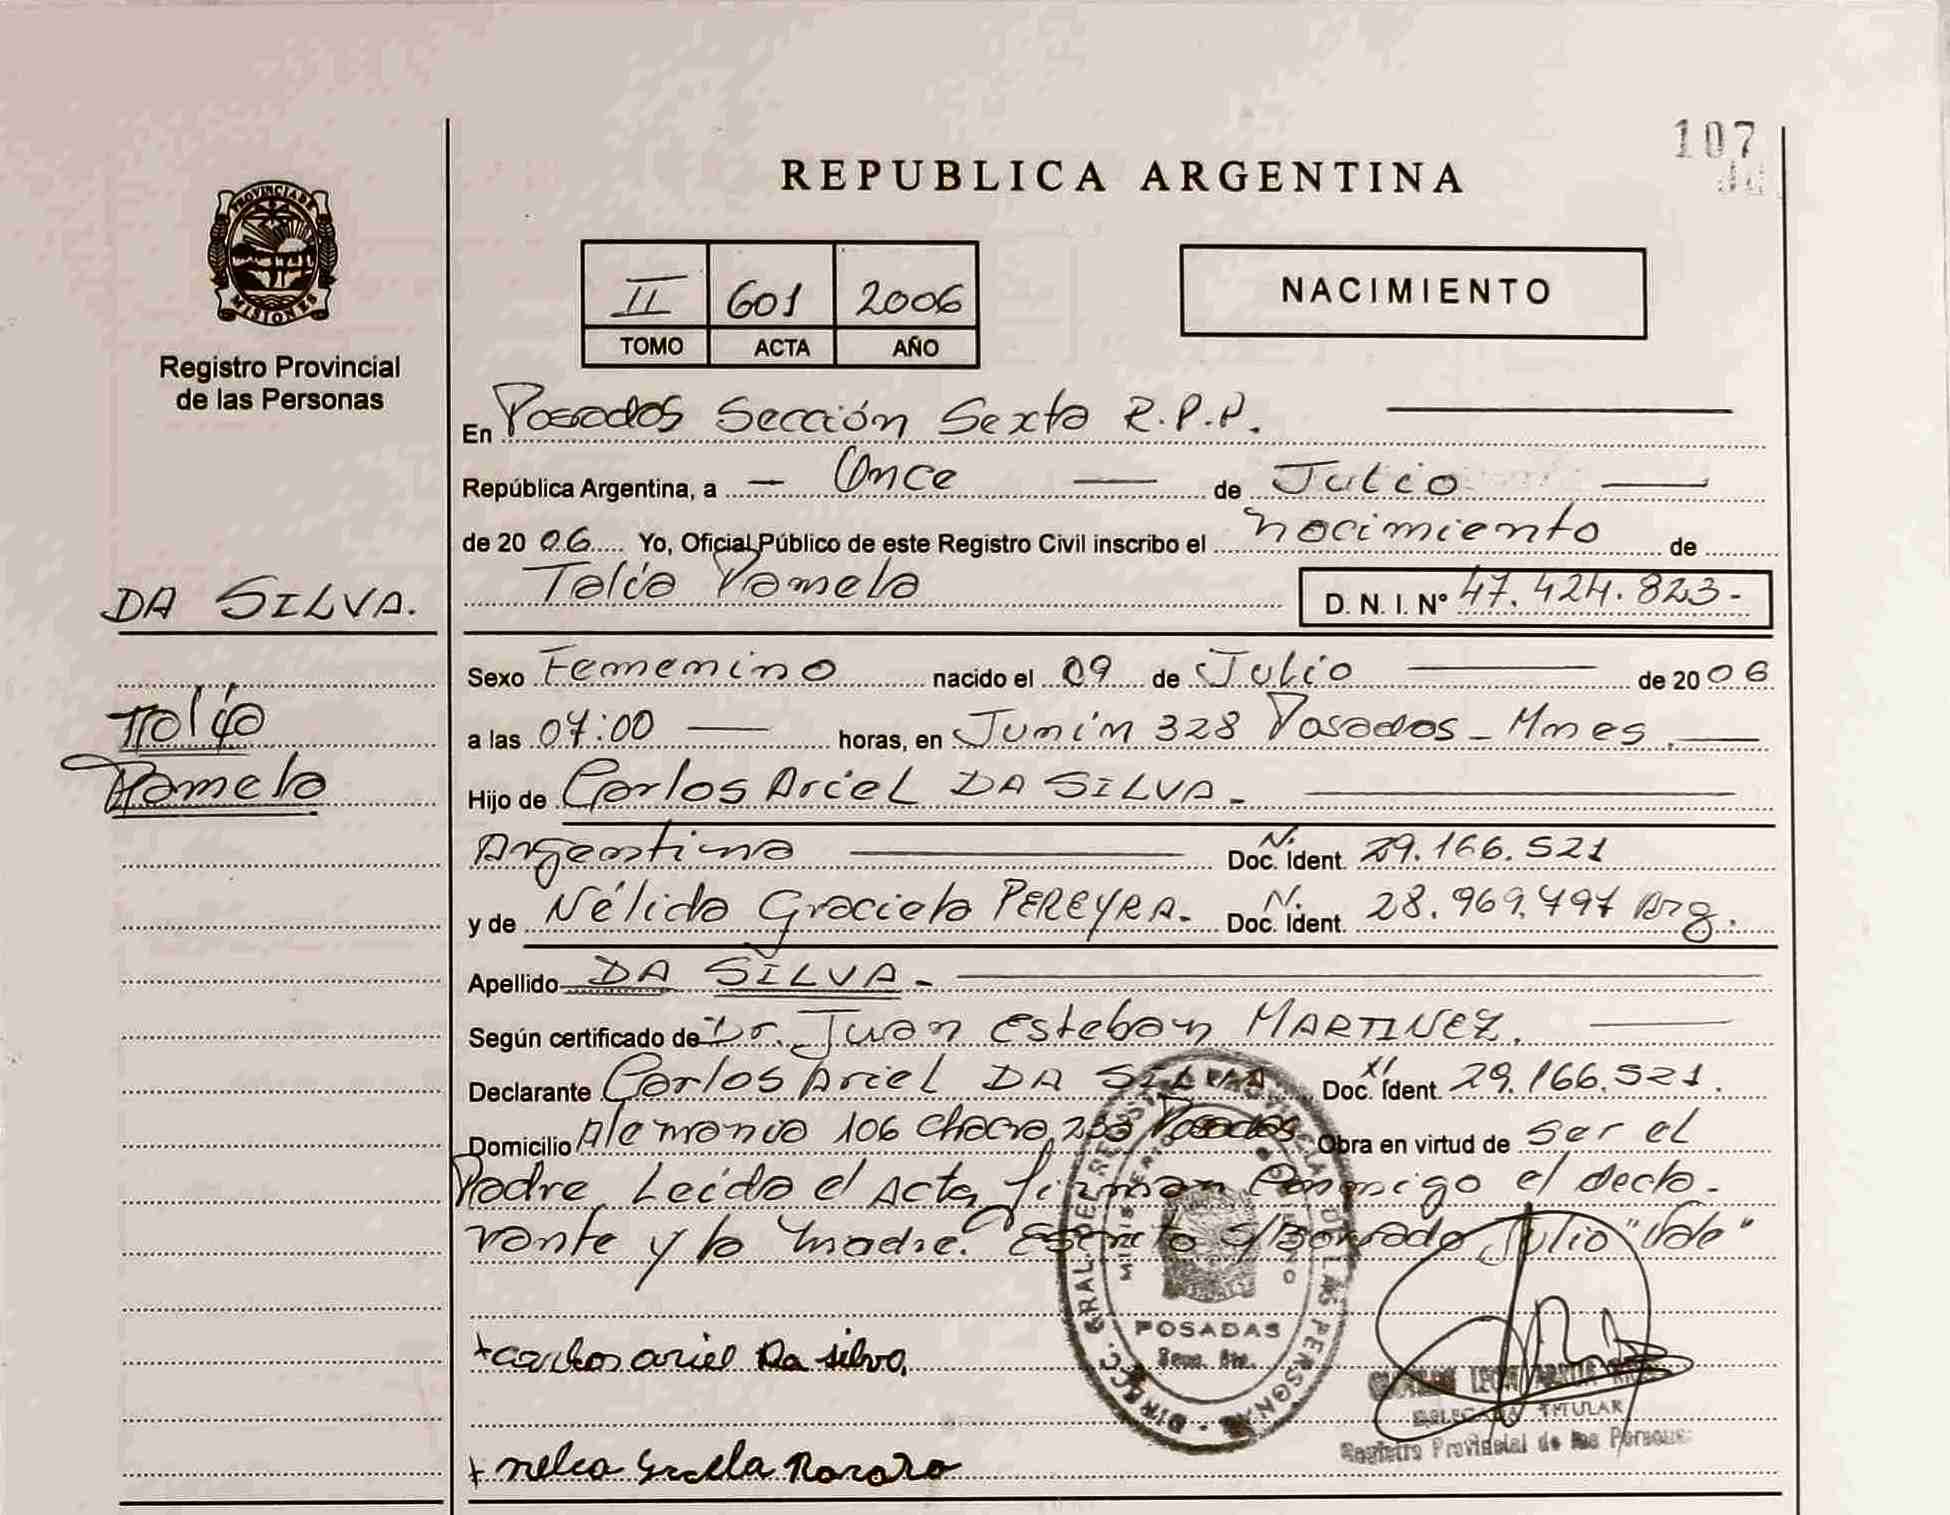 107
REPUBLICA ARGENTINA
PROVINCIA DE MISIONES
Registro Provincial
de las Personas
II 601 2006
TOMO ACTA AÑO
NACIMIENTO
En Posadas Sección Sexta R.P.P.
República Argentina, a Once de Julio
de 2006 Yo, Oficial Público de este Registro Civil inscribo el nacimiento de
Talia Pamela D. N. I. Nº 47.424.823-
DA SILVA.
Talia
Pamela
Sexo Femenino nacido el 09 de Julio de 2006
a las 07:00 horas, en Junín 328 Posadas - Mnes.
Hijo de Carlos Ariel DA SILVA.-
Argentina Doc. Ident. N. 29.166.521
y de Nélida Graciela PEREYRA.- Doc. Ident. N. 28.969.797 Arg.
Apellido DA SILVA.-
Según certificado de Dr. Juan Esteban MARTINEZ.
Declarante Carlos Ariel DA SILVA Doc. Ident. 29.166.521.
Domicilio Alemania 106 Chacra Posadas Obra en virtud de ser el
Padre. Leída el Acta, firman Conmigo el decla-
rante y la madre. Escrito s/Borrado Julio "Vale"
DIRECC. GRAL. DE REGISTRO PROVINCIAL DE LAS PERSONAS
MINISTERIO DE GOBIERNO
POSADAS
Secc. 6ta.
carlos ariel Da silva
LEON
DELEGADA TITULAR
Registro Provincial de las Personas